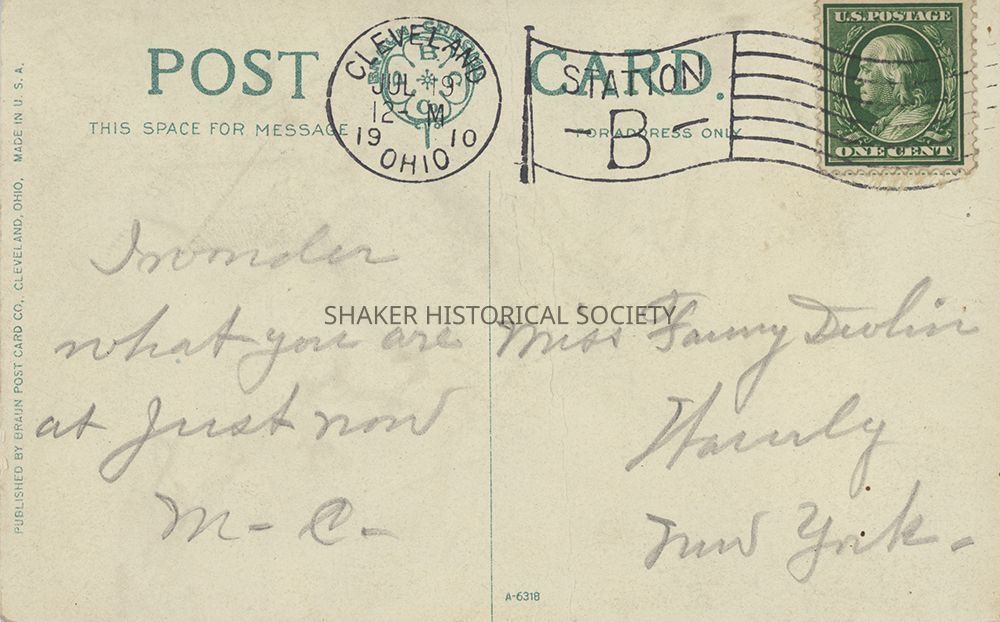 POST CARD.
THIS SPACE FOR MESSAGE
FOR ADDRESS ONLY
CLEVELAND
JUL 19
12 M
19 10
OHIO
STATION
-B-
U.S. POSTAGE
ONE CENT
I wonder
what you are
at just now
M- C-
Miss Fanny Devlin
Waverly
New York.
SHAKER HISTORICAL SOCIETY
PUBLISHED BY BRAUN POST CARD CO., CLEVELAND, OHIO, MADE IN U.S.A.
A-6318